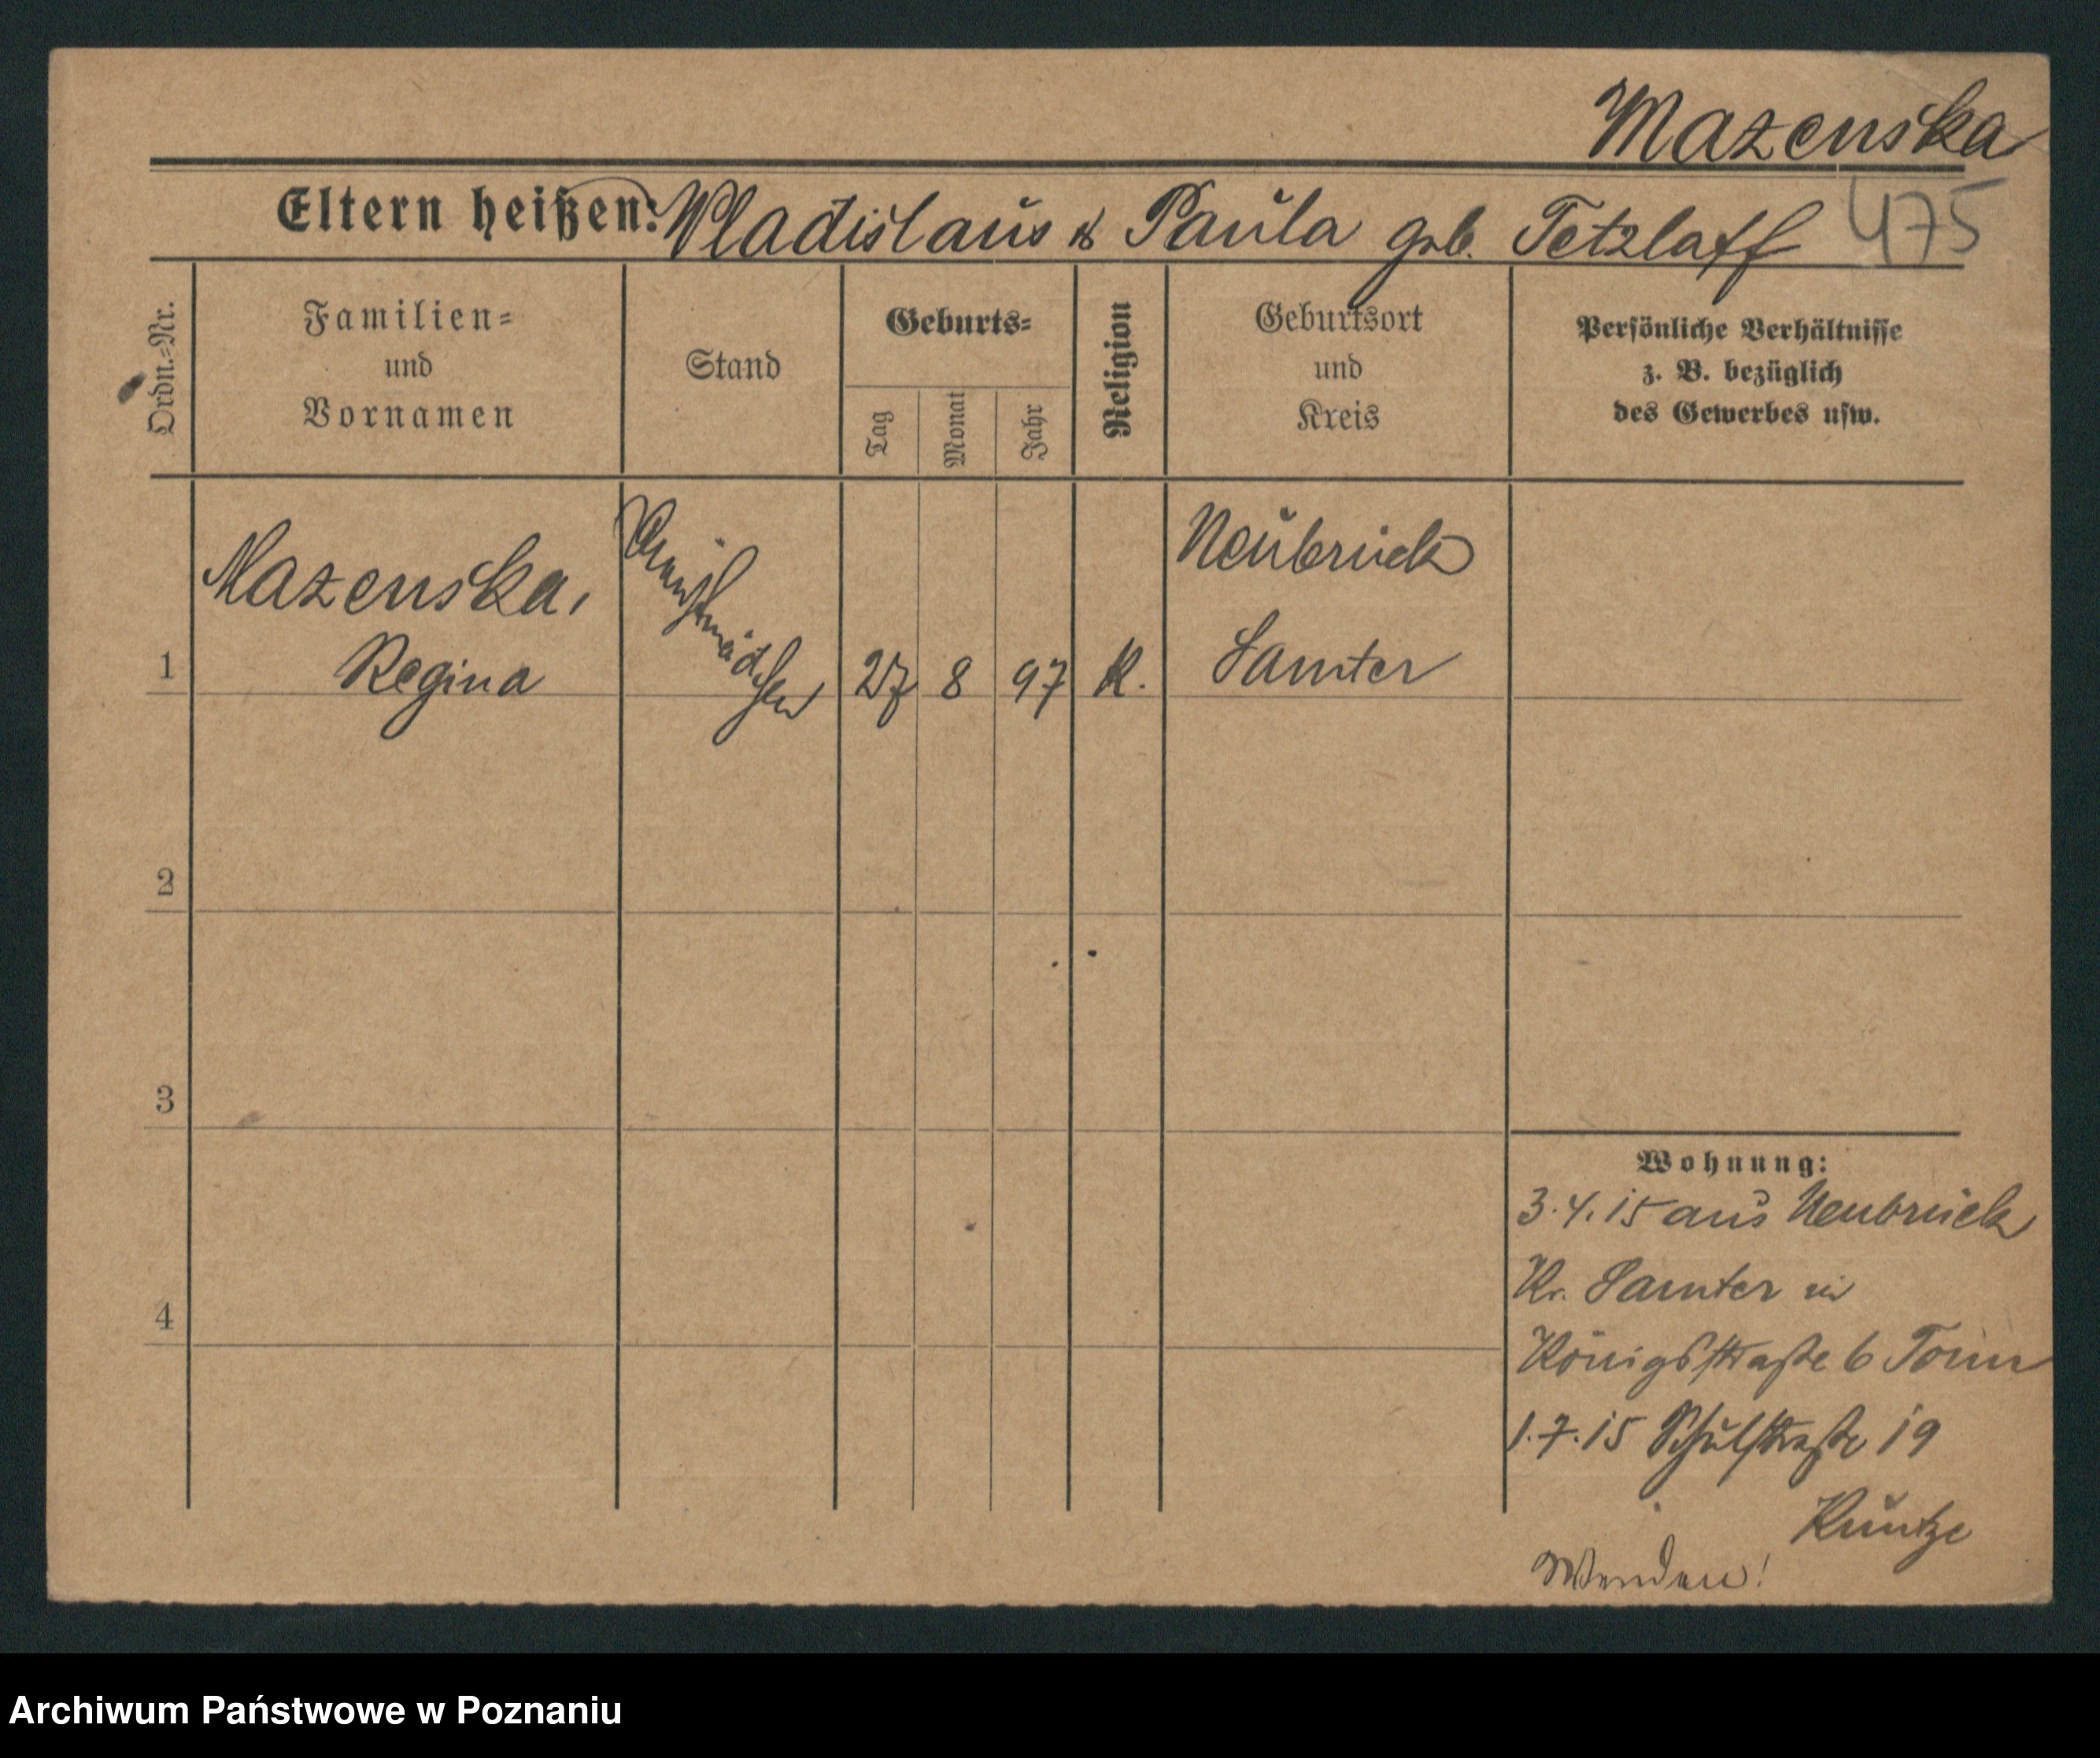 Mazenska
Eltern heißen: Wladislaus & Paula geb. Tetzlaff
475
Ordn.-Nr.
Familien-
und
Vornamen
Stand
Geburts-
Tag
Monat
Jahr
Religion
Geburtsort
und
Kreis
Persönliche Verhältnisse
z. B. bezüglich
des Gewerbes usw.
1
Mazenska,
Regina
Dienstmädchen
27
8
97
K.
Neubrück
Samter
2
3
4
Wohnung:
3.4.15 aus Neubrück
Kr. Samter in
Königsstraße 6
1.7.15 Schulstraße 19
Kuntze
Wenden!
Archiwum Państwowe w Poznaniu